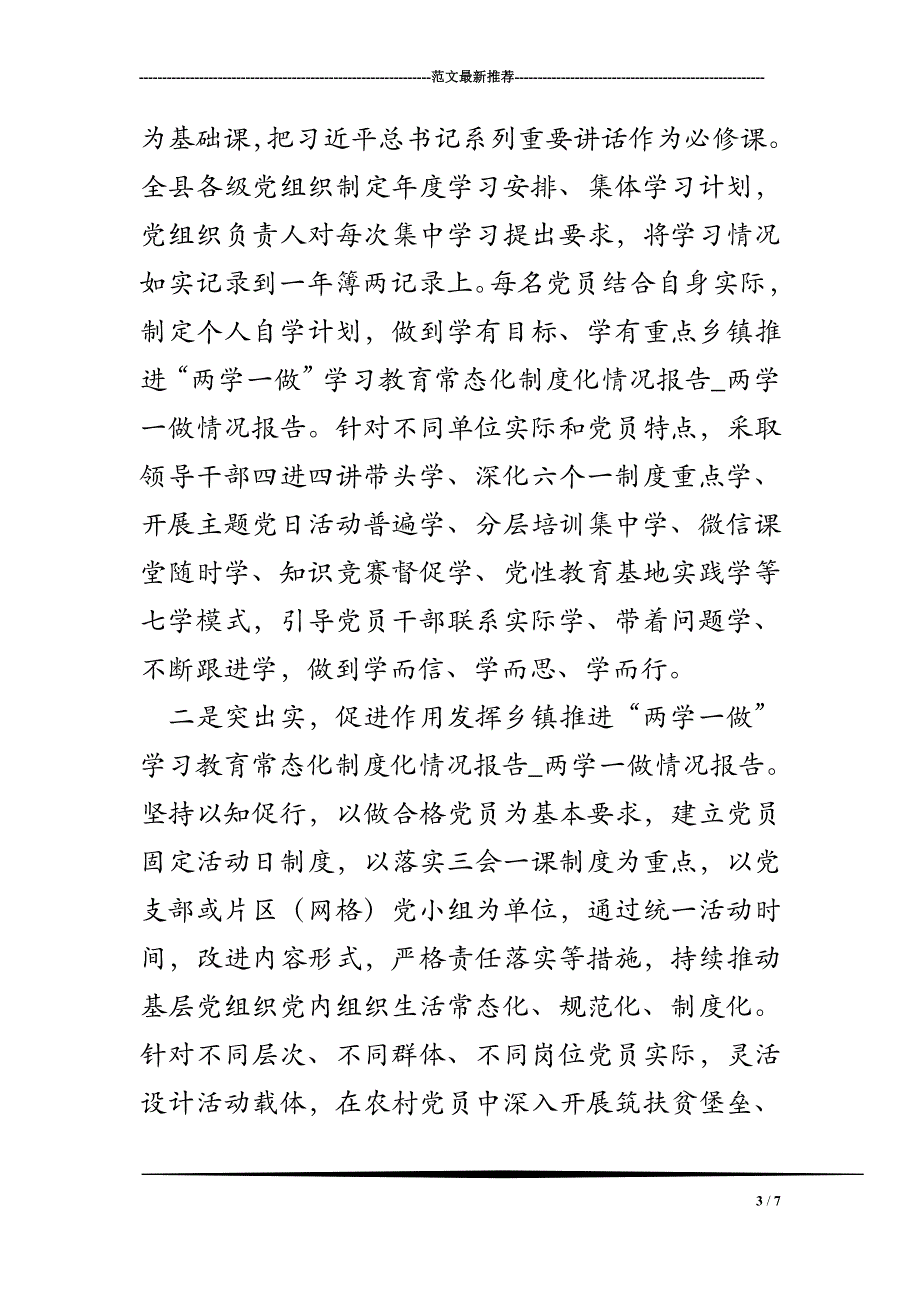 ---------------------------------------------------------------范文最新推荐------------------------------------------------------
为基础课，把习近平总书记系列重要讲话作为必修课。
全县各级党组织制定年度学习安排、集体学习计划，
党组织负责人对每次集中学习提出要求，将学习情况
如实记录到一年簿两记录上。每名党员结合自身实际，
制定个人自学计划，做到学有目标、学有重点乡镇推
进“两学一做”学习教育常态化制度化情况报告_两学
一做情况报告。针对不同单位实际和党员特点，采取
领导干部四进四讲带头学、深化六个一制度重点学、
开展主题党日活动普遍学、分层培训集中学、微信课
堂随时学、知识竞赛督促学、党性教育基地实践学等
七学模式，引导党员干部联系实际学、带着问题学、
不断跟进学，做到学而信、学而思、学而行。
二是突出实，促进作用发挥乡镇推进“两学一做”
学习教育常态化制度化情况报告_两学一做情况报告。
坚持以知促行，以做合格党员为基本要求，建立党员
固定活动日制度，以落实三会一课制度为重点，以党
支部或片区（网格）党小组为单位，通过统一活动时
间，改进内容形式，严格责任落实等措施，持续推动
基层党组织党内组织生活常态化、规范化、制度化。
针对不同层次、不同群体、不同岗位党员实际，灵活
设计活动载体，在农村党员中深入开展筑扶贫堡垒、
3 / 7